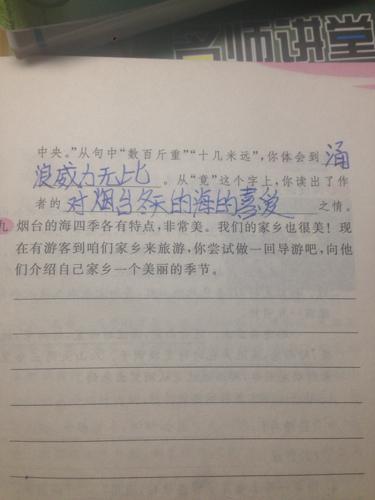 名师讲堂
中央。”从句中“数百斤重”“十几米远”,你体会到 涌
浪威力无比。从“竟”这个字上,你读出了作
者的 对烟台冬天的海的喜爱 之情。
九 烟台的海四季各有特点,非常美。我们的家乡也很美!现
在有游客到咱们家乡来旅游,你尝试做一回导游吧,向他
们介绍自己家乡一个美丽的季节。